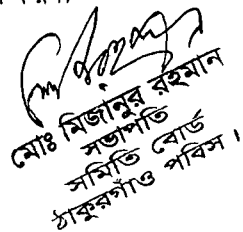 মোঃ মিজানুর রহমান
সভাপতি
সমিতি বোর্ড
ঠাকুরগাঁও পবিস ।